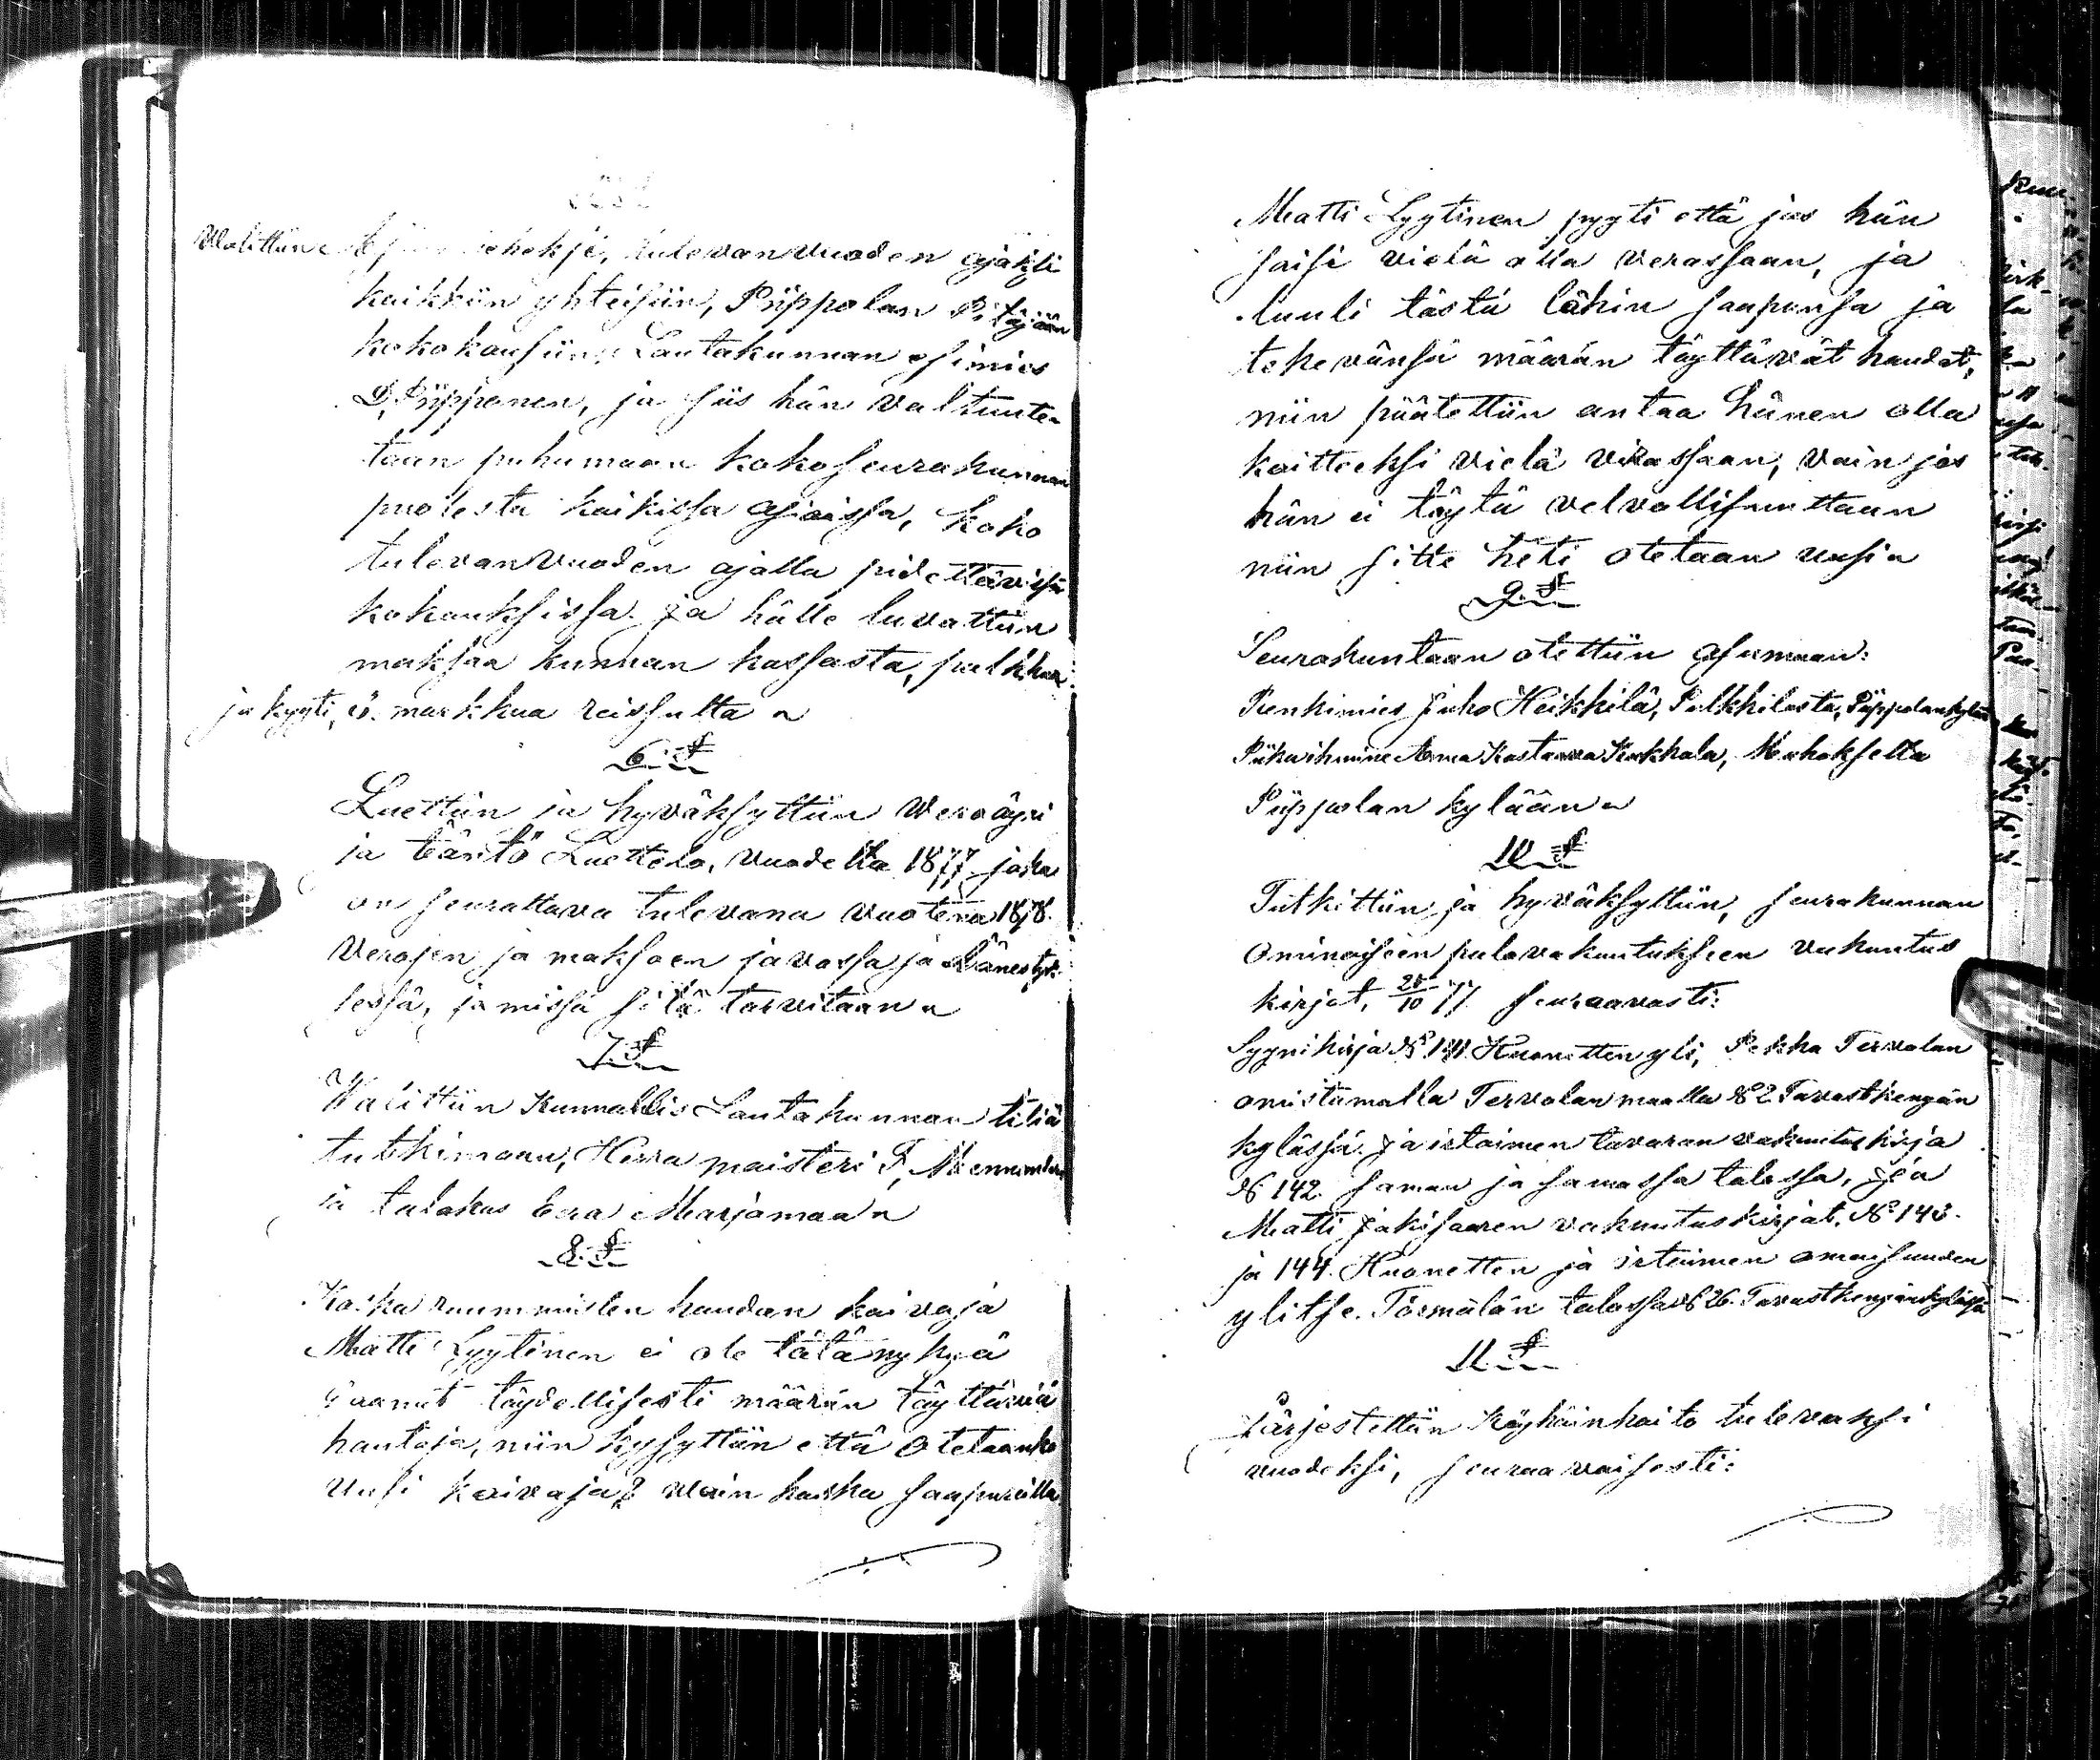 Walittiin tulevan vuoden ajaksi
kaikkiin yhteisiin, Piippolan Pitäjään
kokokouksiin, Lautakunnan esimies
D, Piipponen, ja siis hän valtuute-
taan puhumaan koko seurakunnan
puolesta kaikissa asioissa, koko
tulevan vuoden ajalla pidettävissä
kokouksissa. ja hälle luvattiin
maksaa kunnan kassasta, palkkaa
ja kyyti, markkaa reissulta
6. §
Luettiin ja hyväksyttiin Veroäyri
ja Luettelo, vuodelta 1877 joka
on seurattava tulevana vuotena 1878.
Verojen ja maksoen jaossa ja äänestyk-
sessä, ja missä sitä tarvitaan
7. §
Walittiin Kunnallis Lautakunnan tiliä
tutkimaan, Herra maisteri F,
ja talokas Eera Marjamaa
8. §
Koska ruummisten haudan kaivaja
Matti Lyytinen ei ole tätä nykyä
saanut täydellisesti määrän täyttäviä
hautoja, niin kysyttiin että otetaanko
Uusi kaivaja? vain koska saapuvilla
Matti Lyytinen pyyti että jos hän
saisi vielä olla virassaan, ja
luuli tästä lähin saapansa ja
tekevänsä määrän täyttävät haudat,
niin päätettiin antaa hänen olla
koitteeksi vielä virassaan, vain jos
hän ei täytä velvollisuuttaan
niin sitte heti otetaan uusia
9. §
Seurakuntaan otettiin asumaan:
Renkimies Juho Heikkilä, Pulkkilasta, Piippolankylään
Piikaihminen Anna Kustaava Kokkola, Mahokselta
Piippolan kylään
10 §
Tutkittiin ja hyväksyttiin, seurakunnan
Ominaiseen palovakuutukseen vakuutus
kirjat, 25/10 77 seuraavasti:
Syynikirja No 141. Huonetten yli, Pekka Tervolan
omistamalla Tervolan maalla No 2 Tavastkengän
kylässä. ja irtaimen tavaran vakuutuskirja
No 142. saman ja samassa talossa, ja
Matti Jakisaaren vakuutuskirjat, No 143.
ja 144. Huonetten ja irtaimen omaisuuden
ylitse. Törmälän talossa No 26. Tavastkengänkylässä
11. §
Järjestettiin Köyhäinhoito tulevaksi
vuodeksi, seuraavaisesti: